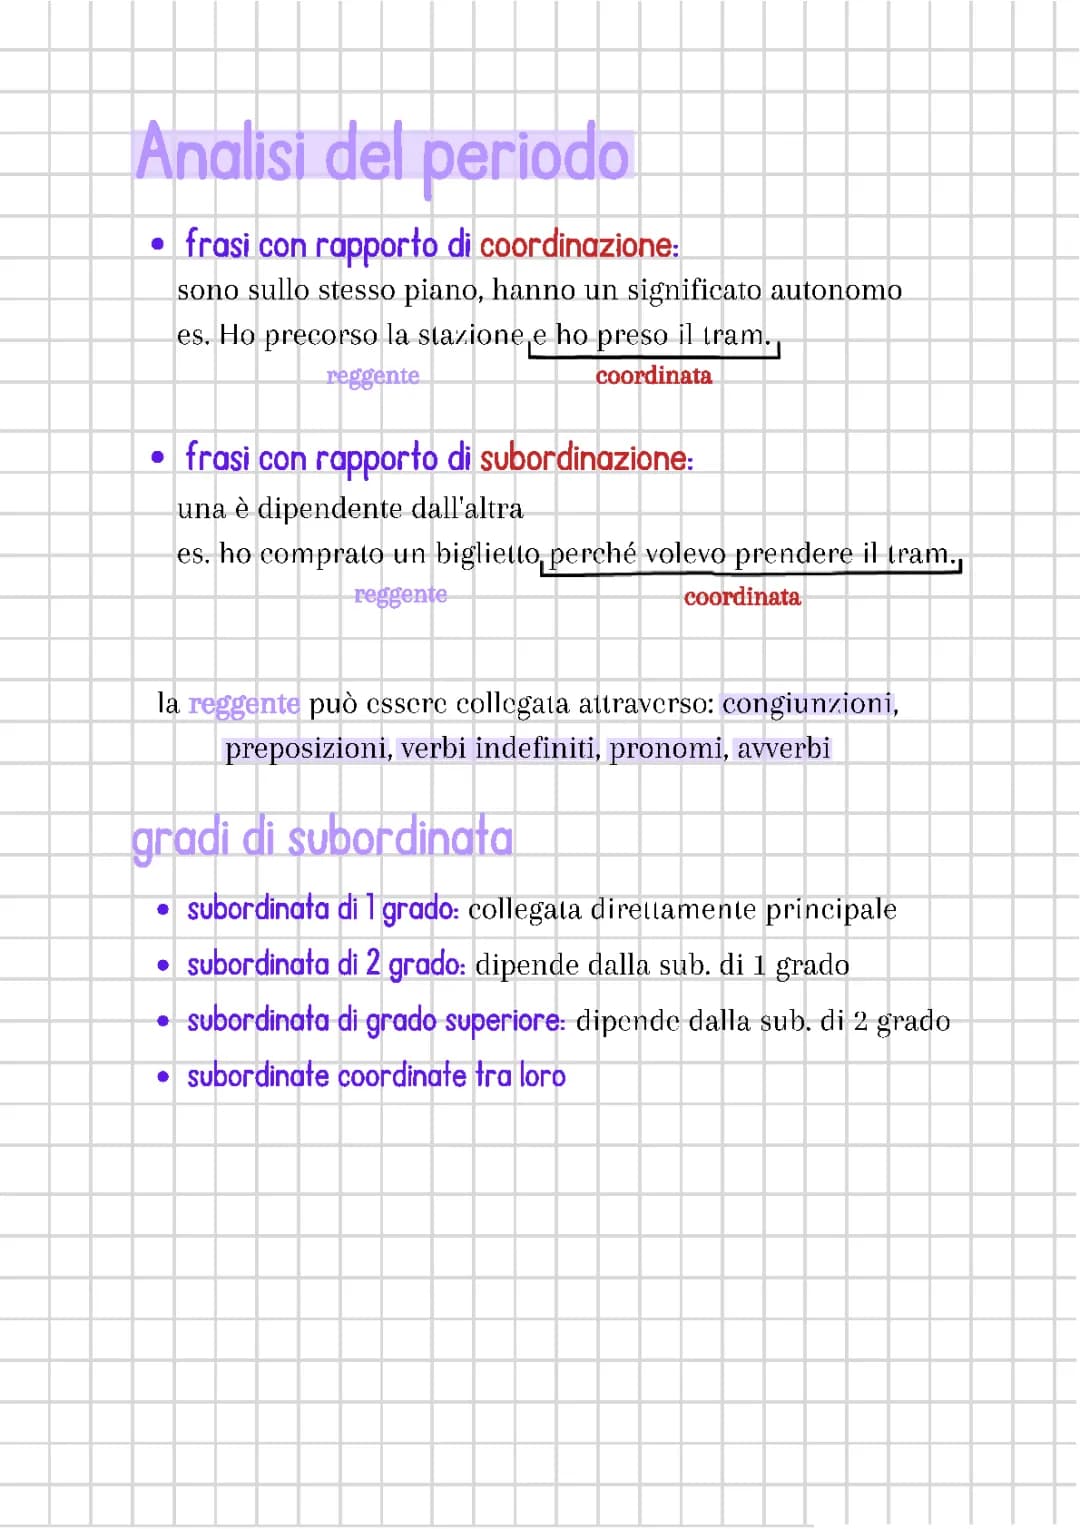 Analisi del periodo
• frasi con rapporto di coordinazione:
sono sullo stesso piano, hanno un significato autonomo
es. Ho precorso la stazione e ho preso il tram.
reggente coordinata
• frasi con rapporto di subordinazione:
una è dipendente dall'altra
es. ho comprato un biglietto perché volevo prendere il tram.
reggente coordinata
la reggente può essere collegata attraverso: congiunzioni,
preposizioni, verbi indefiniti, pronomi, avverbi
gradi di subordinata
• subordinata di 1 grado: collegata direttamente principale
• subordinata di 2 grado: dipende dalla sub. di 1 grado
• subordinata di grado superiore: dipende dalla sub. di 2 grado
• subordinate coordinate tra loro